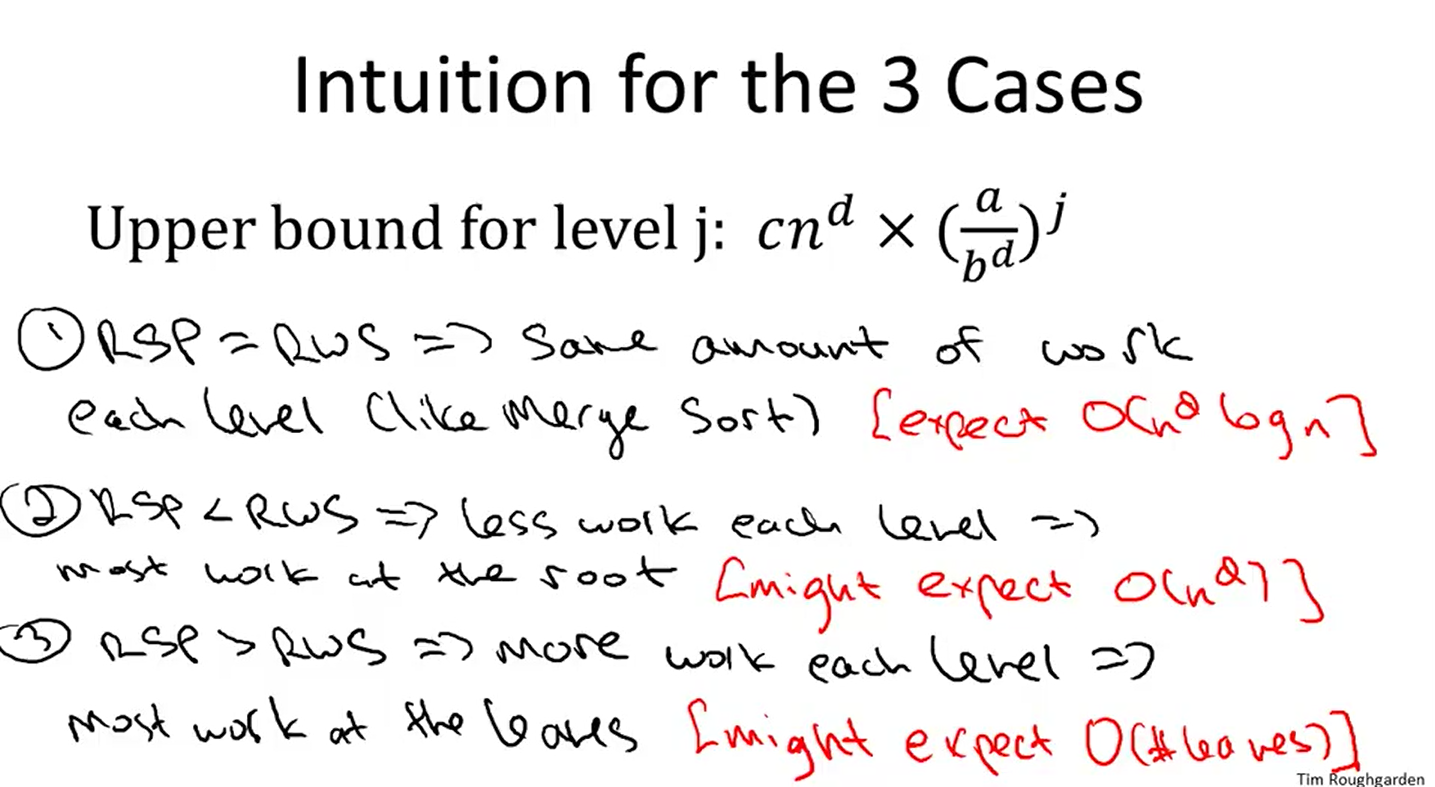 Intuition for the 3 Cases
Upper bound for level j: cn^d × (a/b^d)^j
① RSP = RWS => Same amount of work
each level (like Merge Sort) [expect O(n^d log n]
② RSP < RWS => less work each level =>
most work at the root [might expect O(n^d)]
③ RSP > RWS => more work each level =>
most work at the leaves [might expect O(# leaves)]
Tim Roughgarden